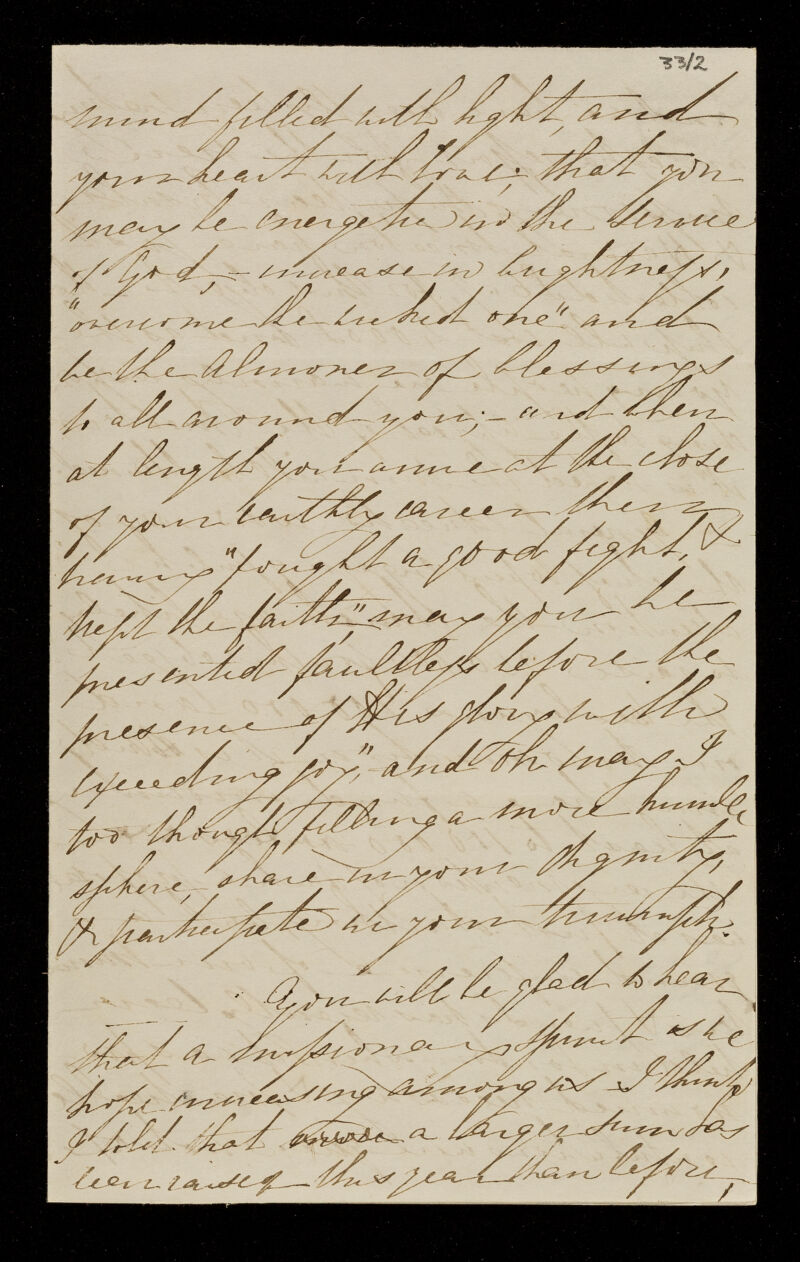 33/2
mind filled with light, and
your heart with love; that you
may be energetic in the service
of God, – increase in brightness,
"overcome the wicked one" and
be the Almoner of blessings
to all around you; – and when
at length you arrive at the close
of your earthly career then &
having "fought a good fight,
kept the faith," may you be
presented faultless before the
presence of His glory with
exceeding joy," and Oh may I
too though filling a more humble
sphere, share in your dignity,
& participate in your triumph.
You will be glad to hear
that a missionary spirit is we
hope increasing among us I think
I told that a larger sum has
been raised this year than before,